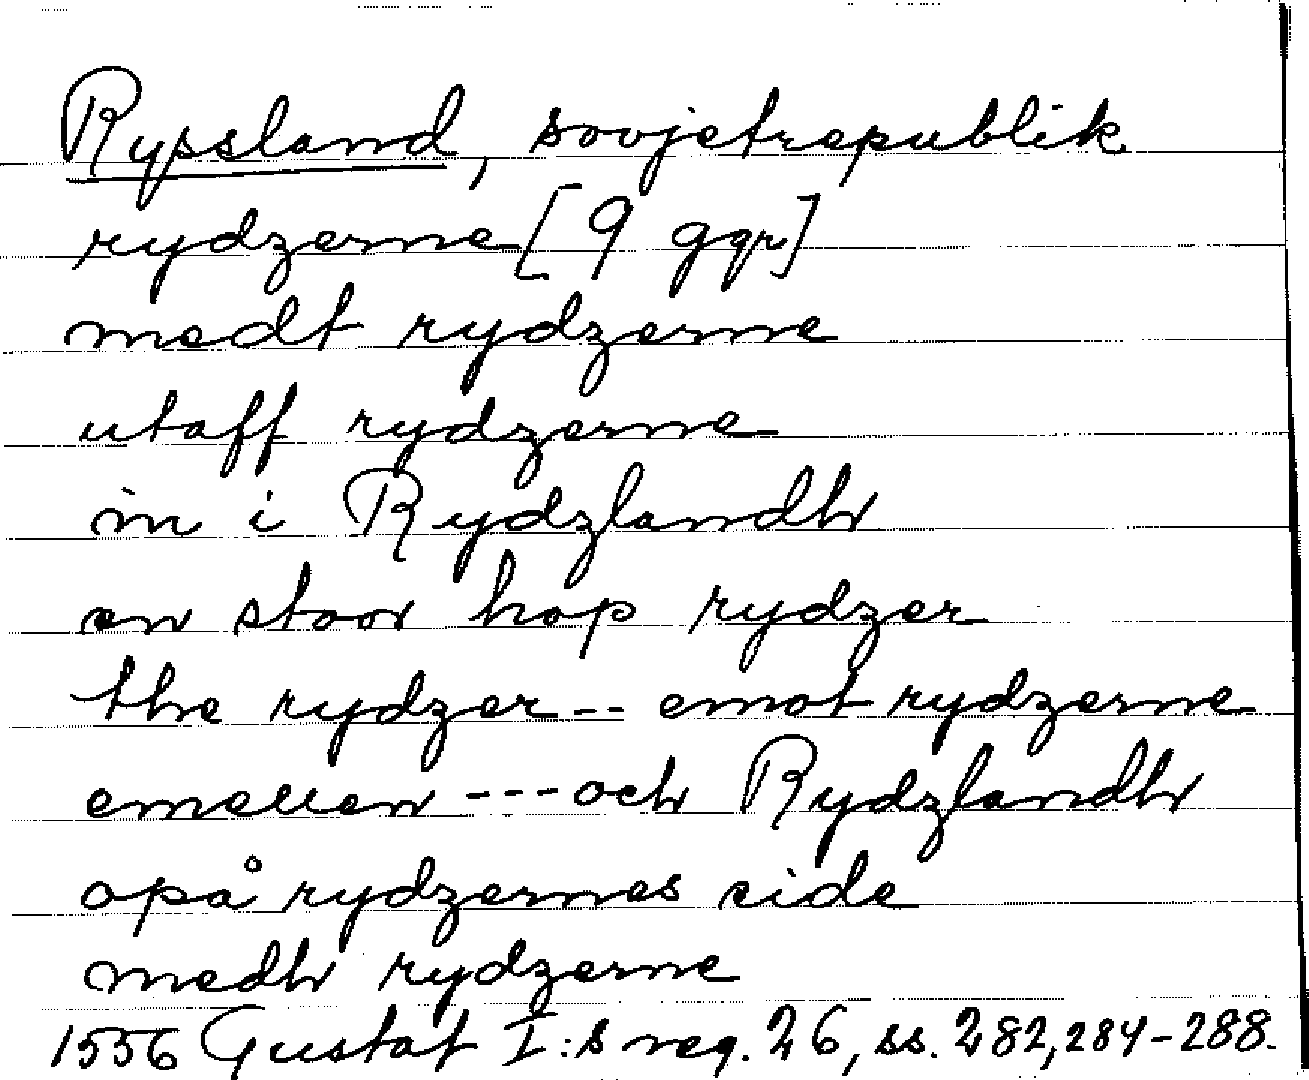 Ryssland, sovjetrepublik
rydzerne [9 ggr]
medt rydzerne
utaff rydzerne
in i Rydzlandh
en stoor hop rydzer
the rydzer -- emot rydzerne
emellen --- och Rydzlandh
opå rydzernes side
medh rydzerne
1556 Gustaf I:s reg. 26, ss. 282, 284-288.